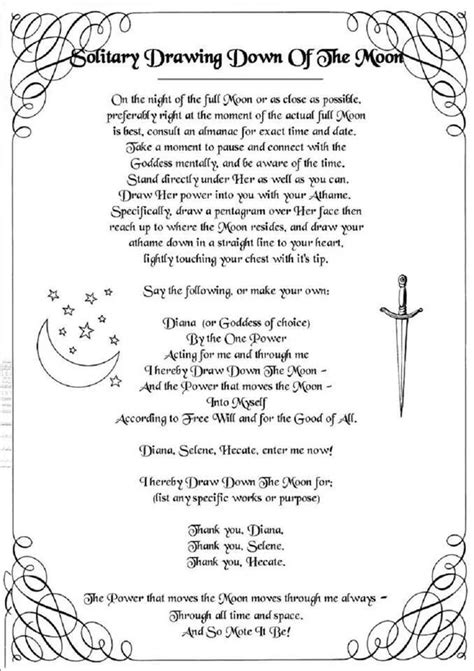 Solitary Drawing Down Of The Moon
On the night of the full Moon or as close as possible,
preferably right at the moment of the actual full Moon
is best, consult an almanac for exact time and date.
Take a moment to pause and connect with the
Goddess mentally, and be aware of the time.
Stand directly under Her as well as you can.
Draw Her power into you with your Athame.
Specifically, draw a pentagram over Her face then
reach up to where the Moon resides, and draw your
athame down in a straight line to your heart,
lightly touching your chest with it's tip.
Say the following, or make your own:
Diana (or Goddess of choice)
By the One Power
Acting for me and through me
I hereby Draw Down The Moon -
And the Power that moves the Moon -
Into Myself
According to Free Will and for the Good of All.
Diana, Selene, Hecate, enter me now!
I hereby Draw Down The Moon for:
(list any specific works or purpose)
Thank you, Diana.
Thank you, Selene.
Thank you, Hecate.
The Power that moves the Moon moves through me always -
Through all time and space.
And So Mote It Be!